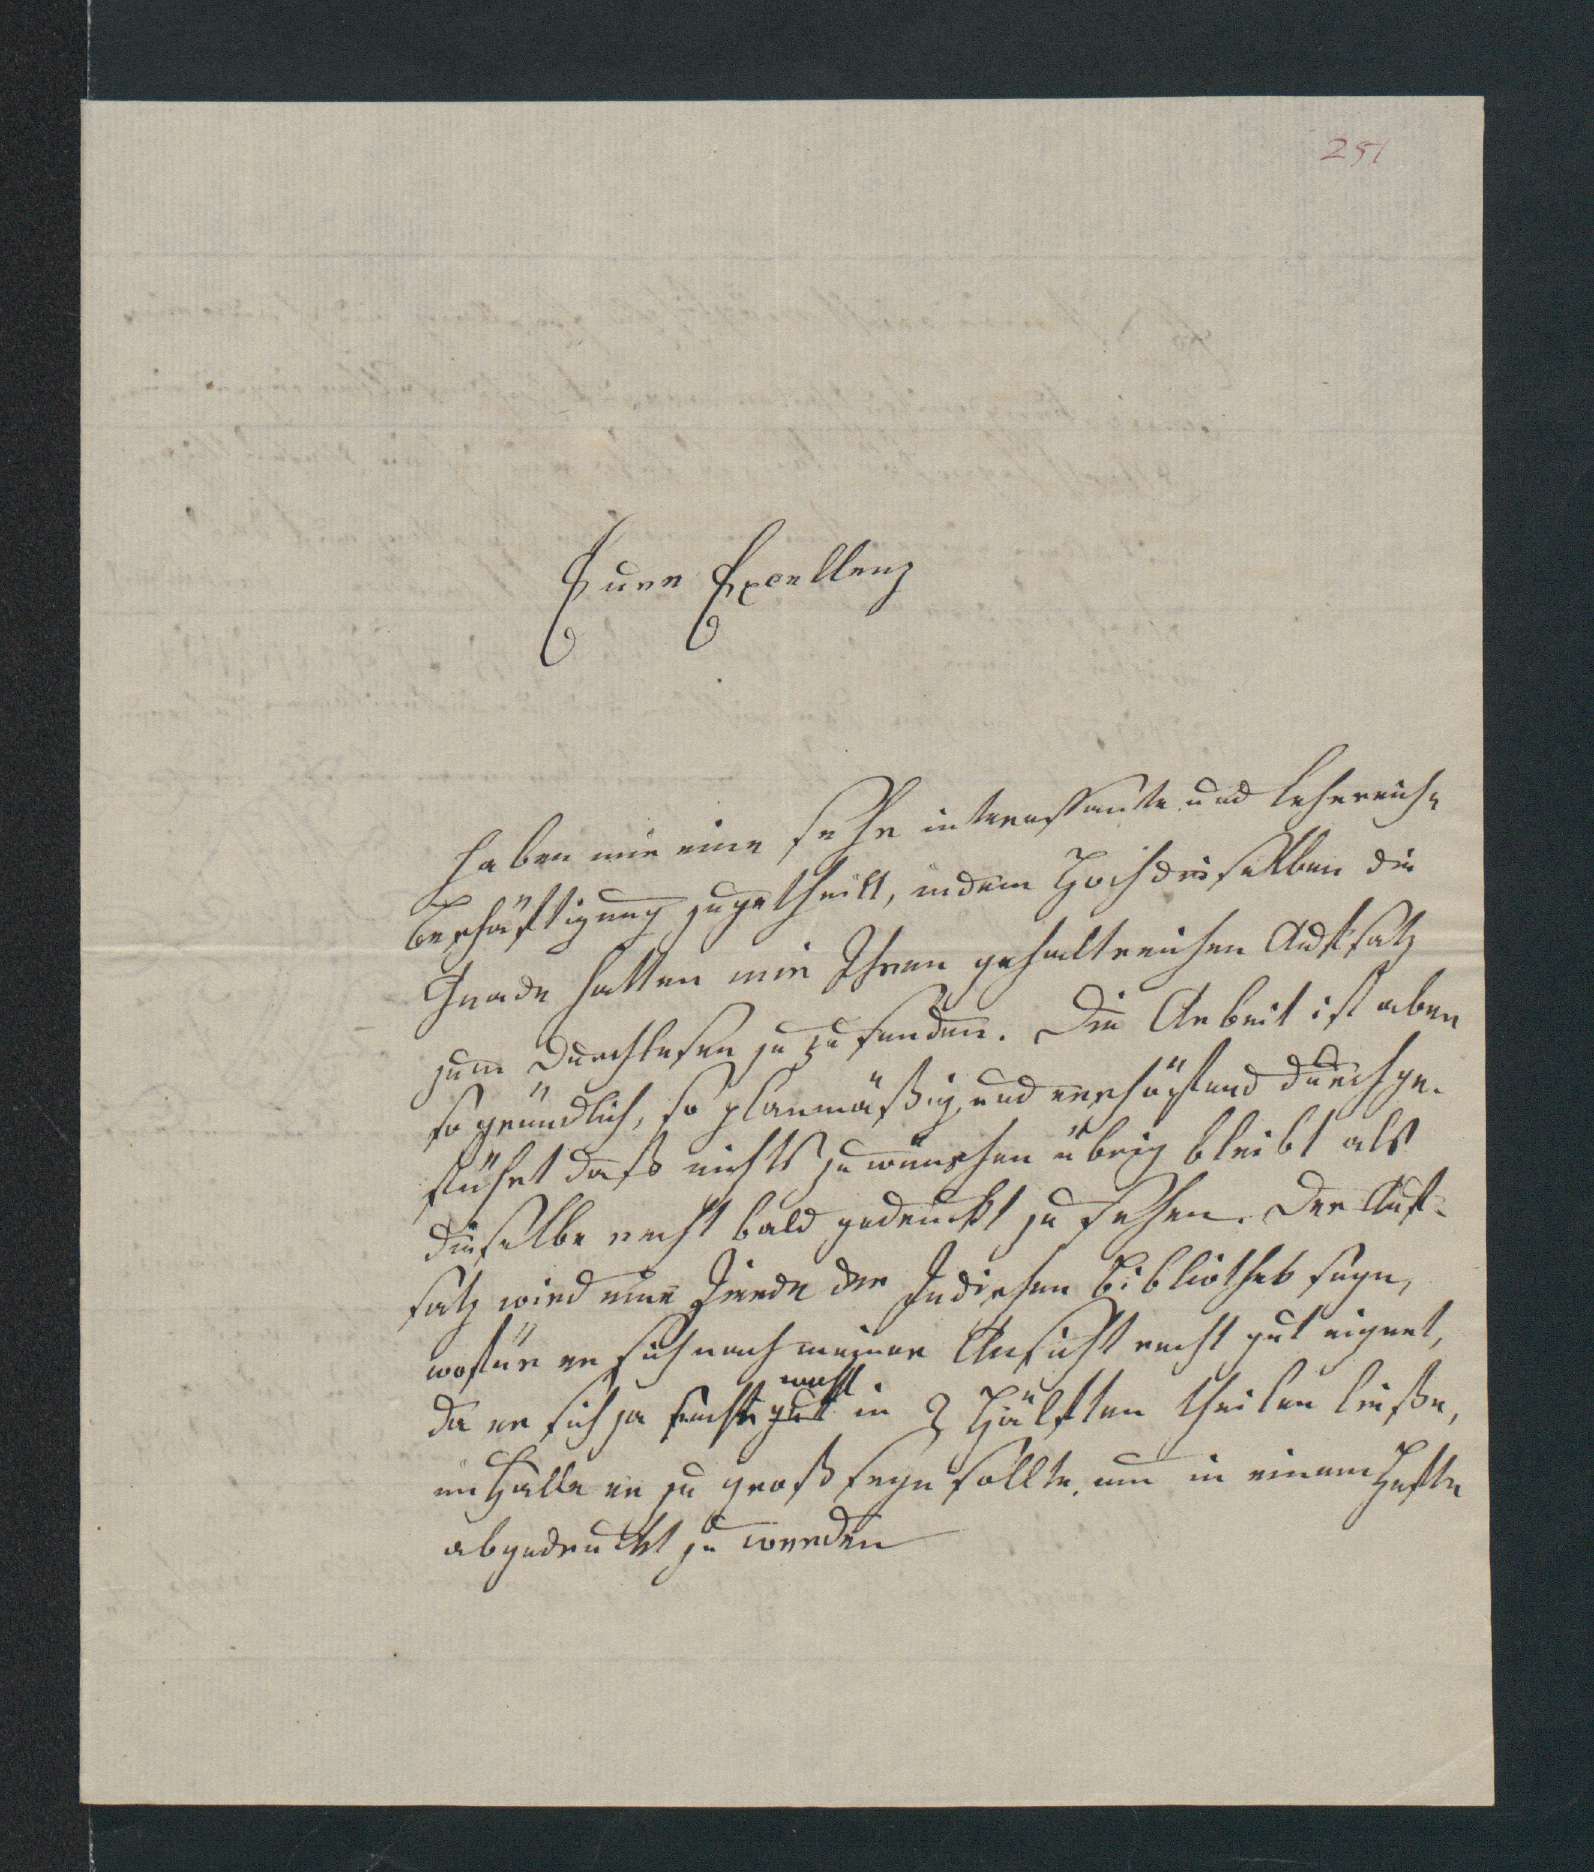 251
Eure Excellenz
haben mir eine sehr interessante und lehrreiche
Beschäftigung zugetheilt, indem Hochdieselben die
Gnade hatten mir Ihren gehaltreichen Aufsatz
zum Durchlesen zu zu senden. Die Arbeit ist aber
so gründlich, so planmäßig und erschöpfend durchge-
führt daß nichts zu wünschen übrig bleibt als
dieselbe recht bald gedruckt zu sehen. Der Auf-
satz wird eine Zierde der Indischen Bibliothek seyn,
wofür er sich nach meiner Ansicht recht gut eignet,
da er sich ja recht
in 2 Hälften theilen ließe,
im Falle er zu groß seyn sollte, um in einem Hefte
abgedruckt zu werden